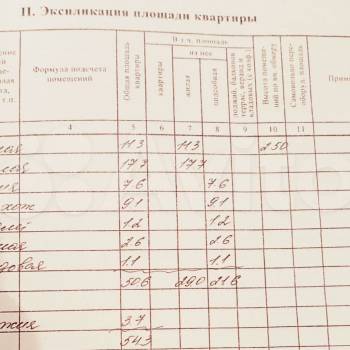 II. Экспликация площади квартиры
Формула подсчета помещений
Общая площадь квартиры
В т.ч. площадь
из нее
квартиры
жилая
подсобная
лоджий, балконов террас, веранд и кладовых (с коэф.)
Высота помещений по вн. обмеру
Самовольно переоборуд. площадь
4 5 6 7 8 9 10 11
11.3 11.3 2.50
17.7 17.7
7.6 7.6
9.1 9.1
1.2 1.2
2.6 2.6
1.1 1.1
50.6 29.0 21.6
3.7
54.3